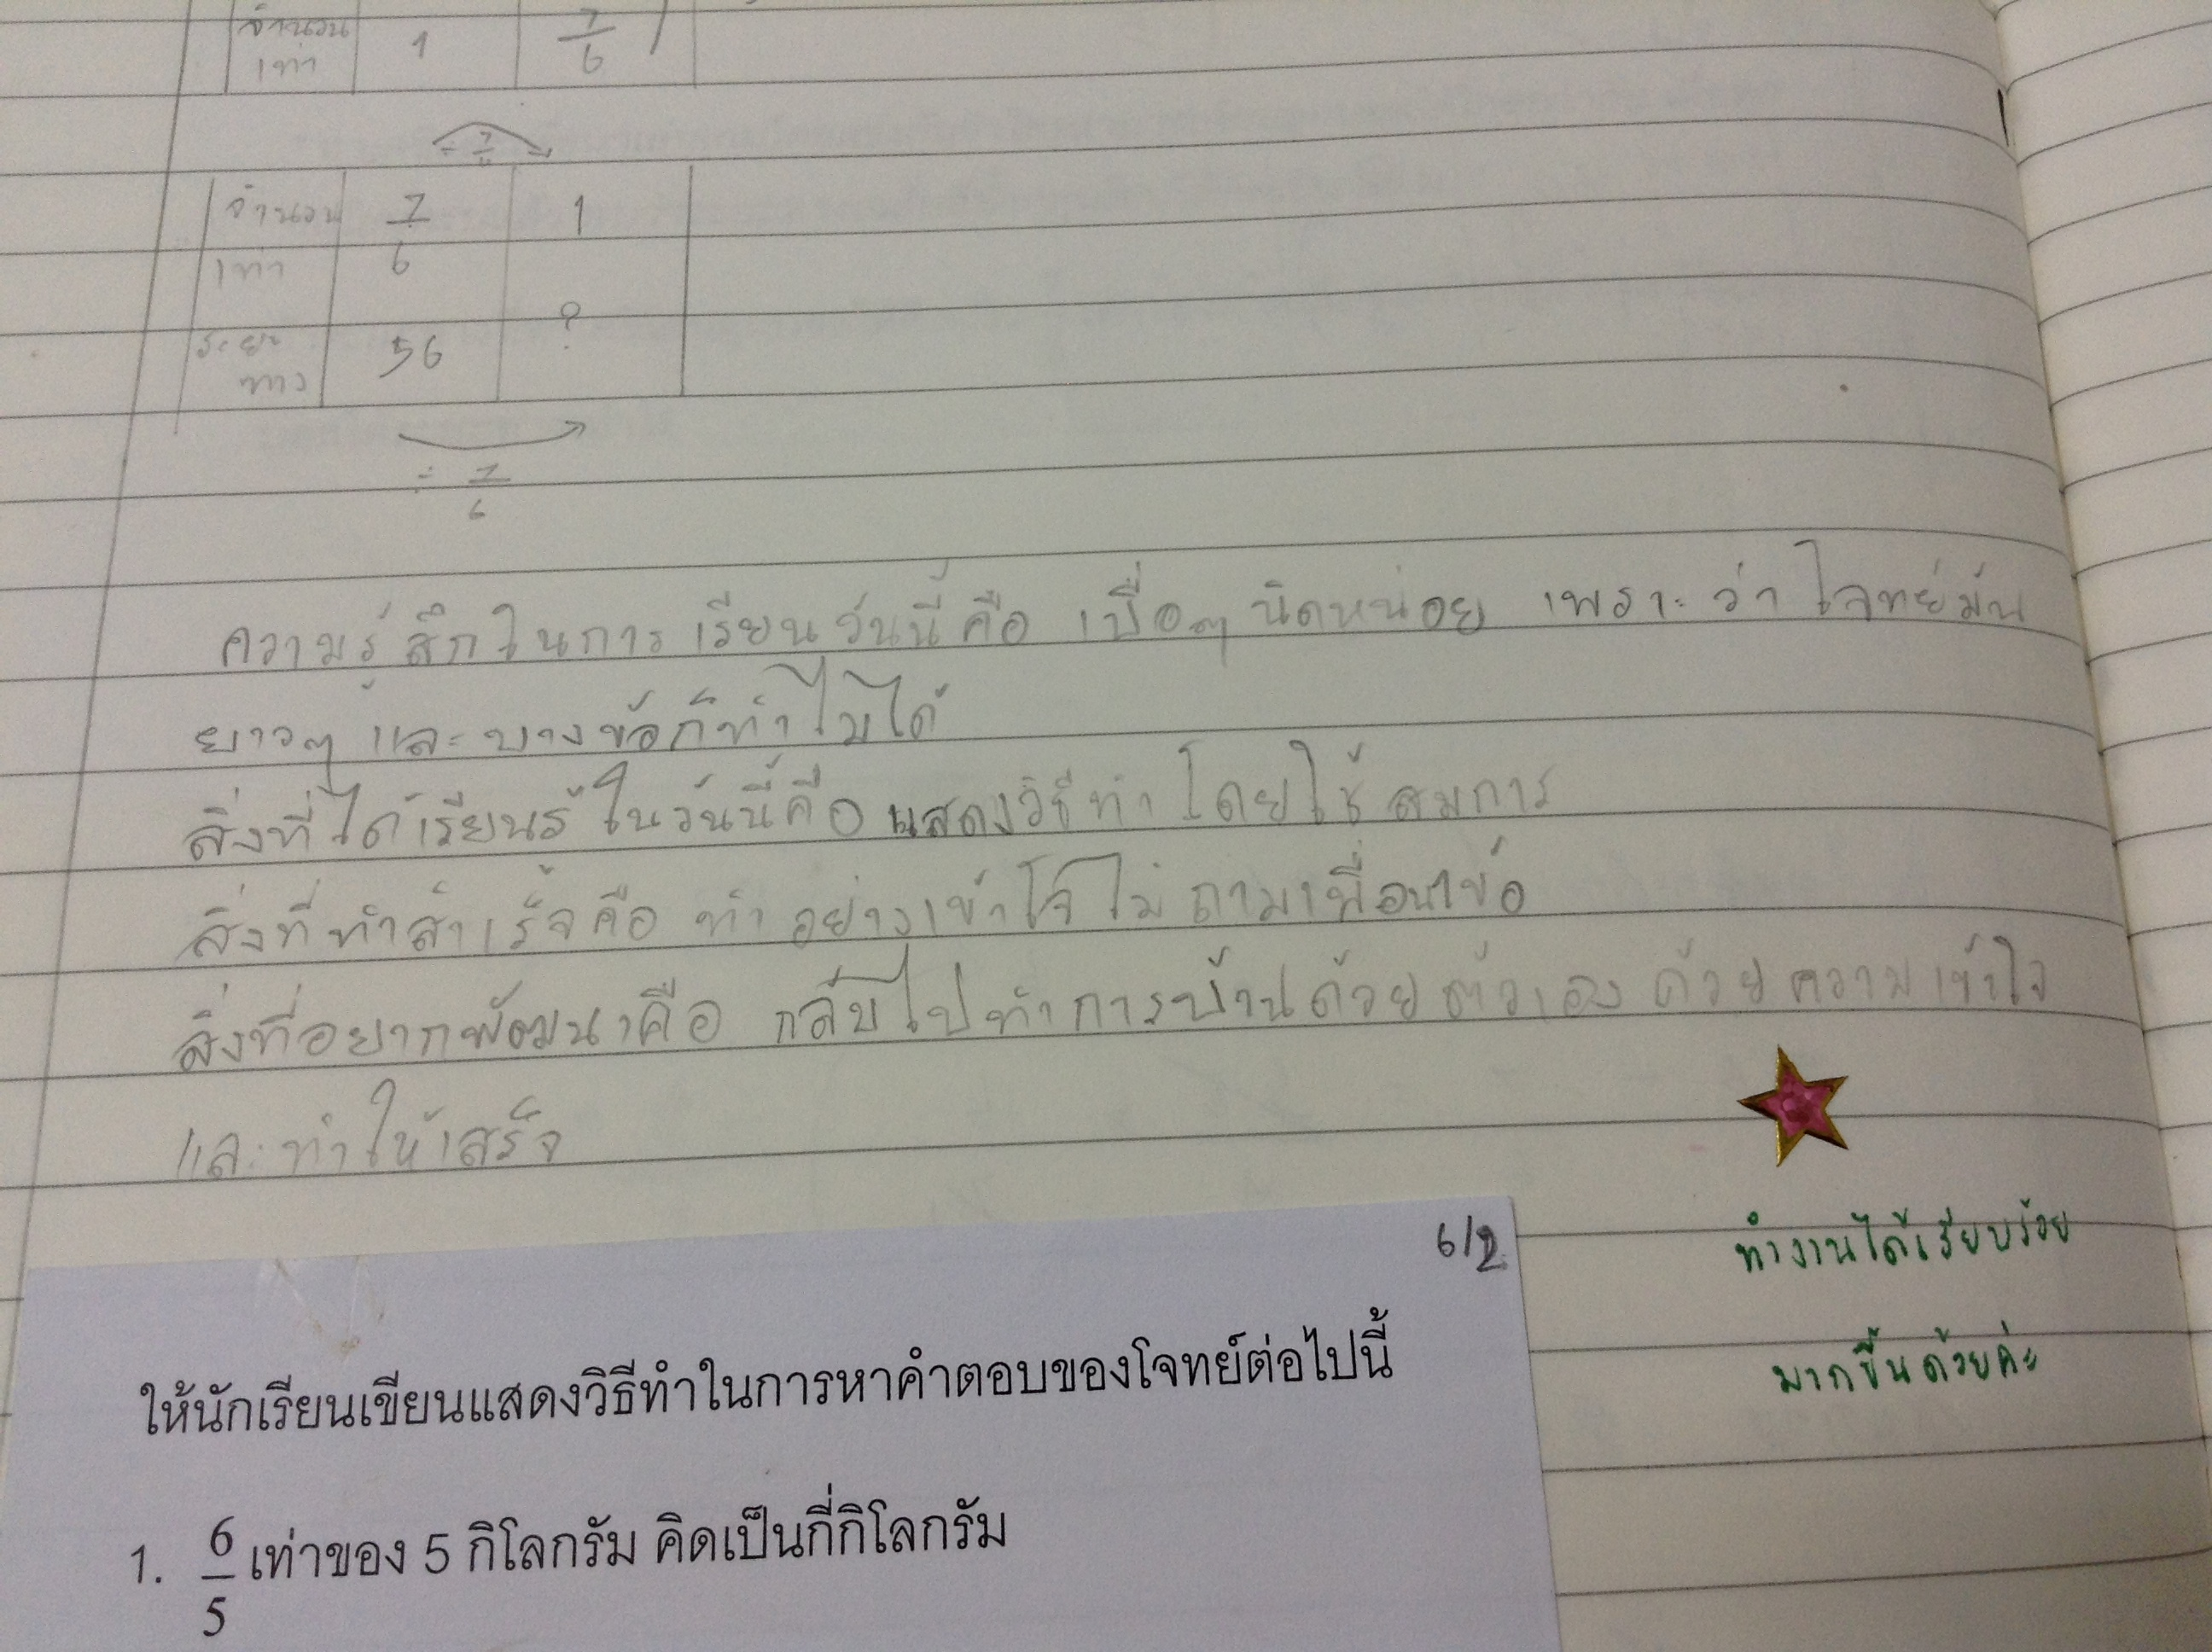 จำนวน
เท่า 1 7/6
÷ 7/6
จำนวน 7/6 1
เท่า
ระยะ 56 ?
ทาง
÷ 7/6
ความรู้สึกในการเรียนวันนี้คือ เบื่อๆ นิดหน่อย เพราะว่า โจทย์มัน
ยาวๆ และบางข้อก็ทำไม่ได้
สิ่งที่ได้เรียนรู้ในวันนี้คือ แสดงวิธีทำ โดยใช้ สมการ
สิ่งที่ทำสำเร็จคือ ทำอย่างเข้าใจ ไม่ถามเพื่อน
สิ่งที่อยากพัฒนาคือ กลับไปทำการบ้านด้วยตัวเอง ด้วยความเข้าใจ
และทำให้เสร็จ
6/2
ทำงานได้เรียบร้อย
มากขึ้นด้วยค่ะ
ให้นักเรียนเขียนแสดงวิธีทำในการหาคำตอบของโจทย์ต่อไปนี้
1. 6/5 เท่าของ 5 กิโลกรัม คิดเป็นกี่กิโลกรัม